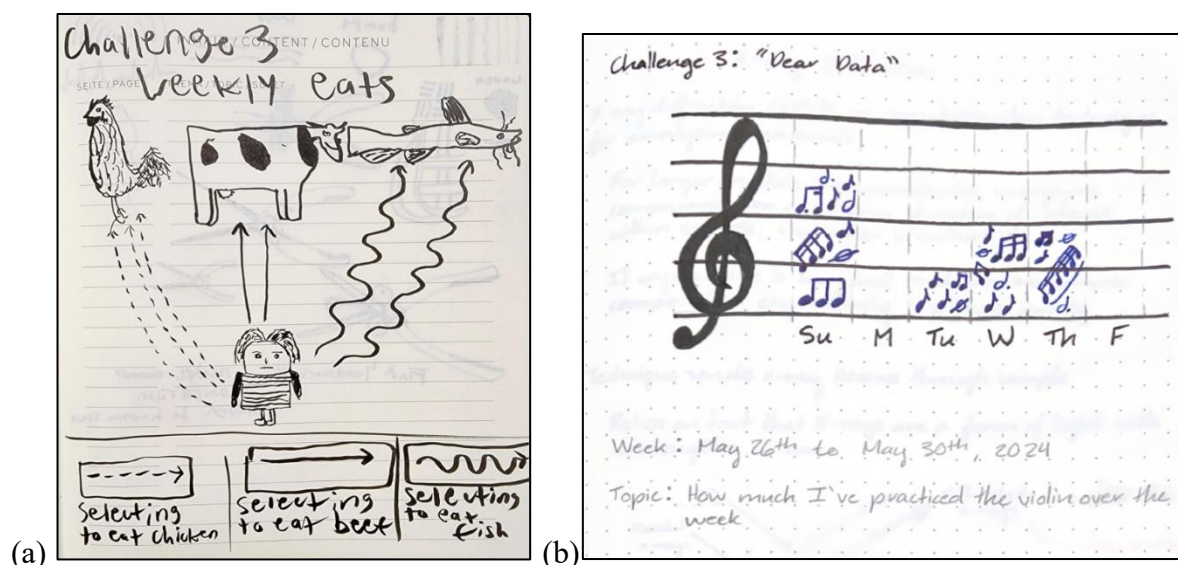 Challenge 3
/ CONTENT / CONTENU
SEITE / PAGE
Weekly eats
selecting
to eat chicken
selecting
to eat beef
selecting
to eat
fish
(a)
Challenge 3: "Dear Data"
Su M Tu W Th F
Week: May 26th to May 30th, 2024
Topic: How much I've practiced the violin over the
week
(b)